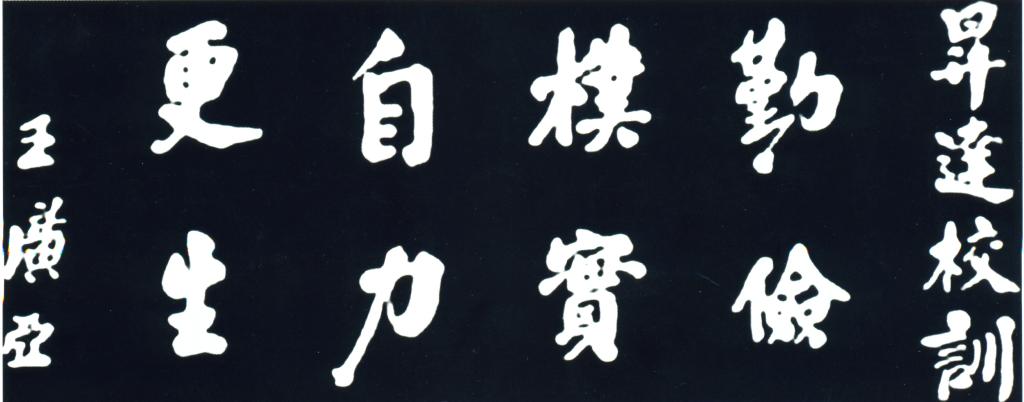 昇達校訓
勤儉
樸實
自力
更生
王廣亞